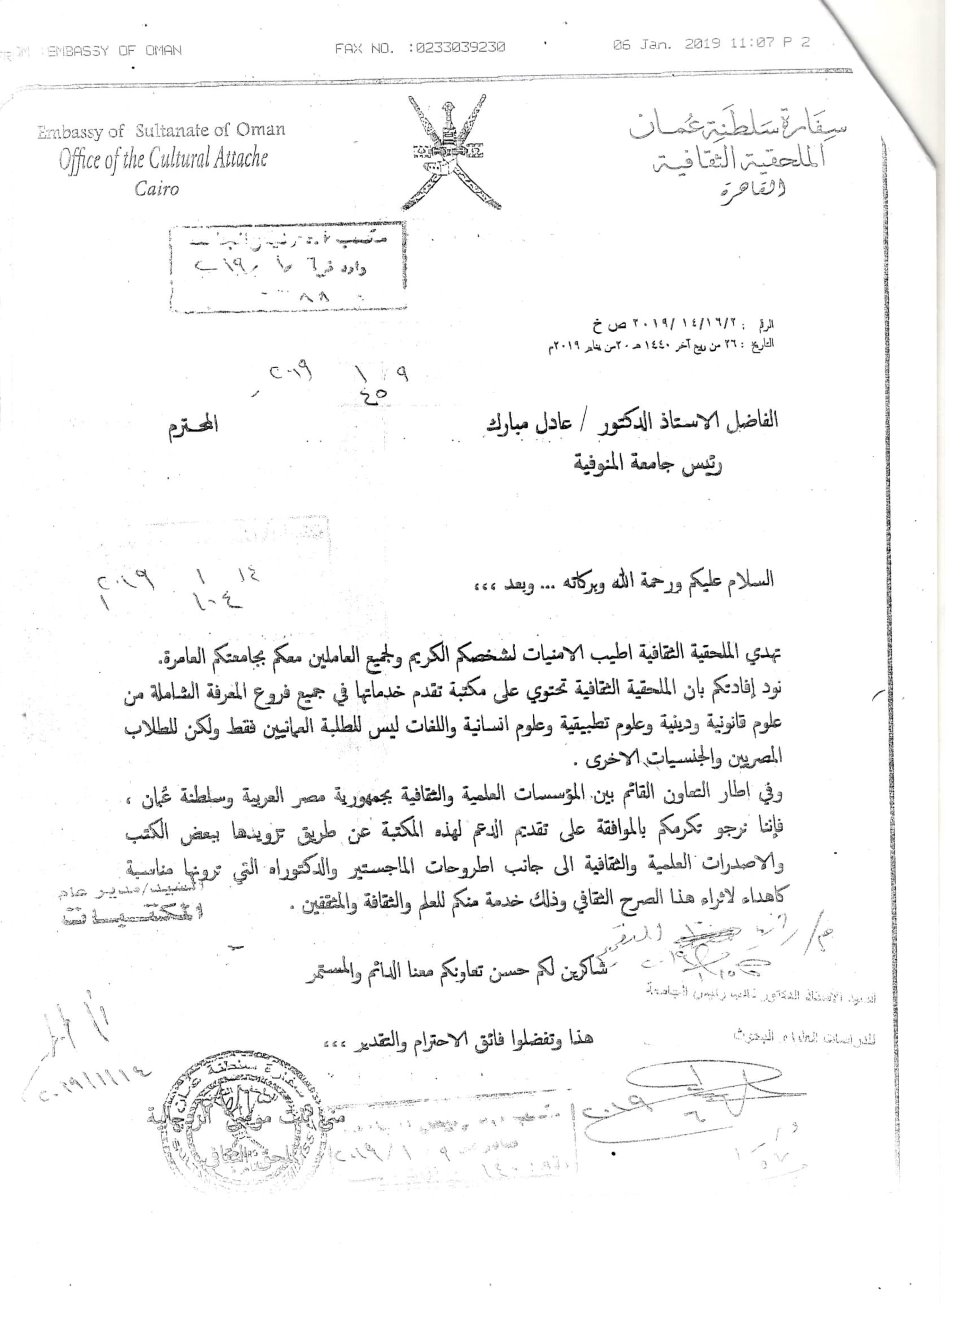 EMBASSY OF OMAN FAX NO. :0233039230 06 Jan. 2019 11:07 P 2
Embassy of Sultanate of Oman
Office of the Cultural Attache
Cairo
سفارة سلطنة عمان
الملحقية الثقافية
القاهرة
الرقم : ٢٠١٩/١٤/١٦/٢ ص خ
التاريخ : ٢٦ من ربيع آخر ١٤٤٠ هـ ٢٠ من يناير ٢٠١٩م
٩ / ١ ٢٠١٩
٤٥
الفاضل الاستاذ الدكتور / عادل مبارك المحترم
رئيس جامعة المنوفية
١٤ ١ ٢٠١٩
السلام عليكم ورحمة الله وبركاته ... وبعد ،،،
تهدي الملحقية الثقافية اطيب الامنيات لشخصكم الكريم ولجميع العاملين معكم بجامعتكم العامرة.
نود إفادتكم بان الملحقية الثقافية تحتوي على مكتبة تقدم خدماتها في جميع فروع المعرفة الشاملة من
علوم قانونية ودينية وعلوم تطبيقية وعلوم انسانية واللغات ليس للطلبة العمانيين فقط ولكن للطلاب
المصريين والجنسيات الاخرى .
وفي اطار التعاون القائم بين المؤسسات العلمية والثقافية بجمهورية مصر العربية وسلطنة عُمان ،
فإننا نرجو تكرمكم بالموافقة على تقديم الدعم لهذه المكتبة عن طريق تزويدها ببعض الكتب
والاصدرات العلمية والثقافية الى جانب اطروحات الماجستير والدكتوراه التي ترونها مناسبة
كاهداء لاثراء هذا الصرح الثقافي وذلك خدمة منكم للعلم والثقافة والمثقفين .
السيد/مدير عام
المكتبات
شاكرين لكم حسن تعاونكم معنا الدائم والمستمر
السيد الاستاذ الدكتور نائب رئيس الجامعة
للدراسات العليا والبحوث
هذا وتفضلوا فائق الاحترام والتقدير ،،،
٢٠١٩/١/١٤
سفارة سلطنة عمان